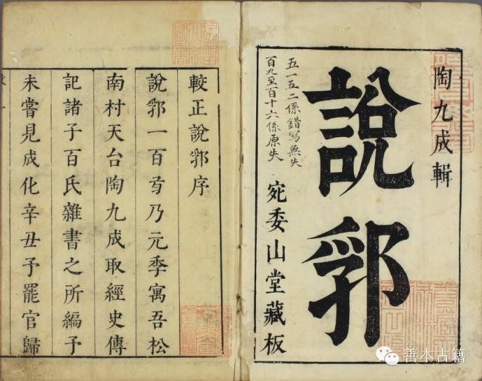 陶九成輯
說郛
五一五二係錯寫無失
百九至百十六係原失
宛委山堂藏板
較正說郛序
說郛一百乃元季寓吾松
南村天台陶九成取經史傳
記諸子百氏雜書之所編予
未嘗見成化辛丑予罷官歸
善本古籍